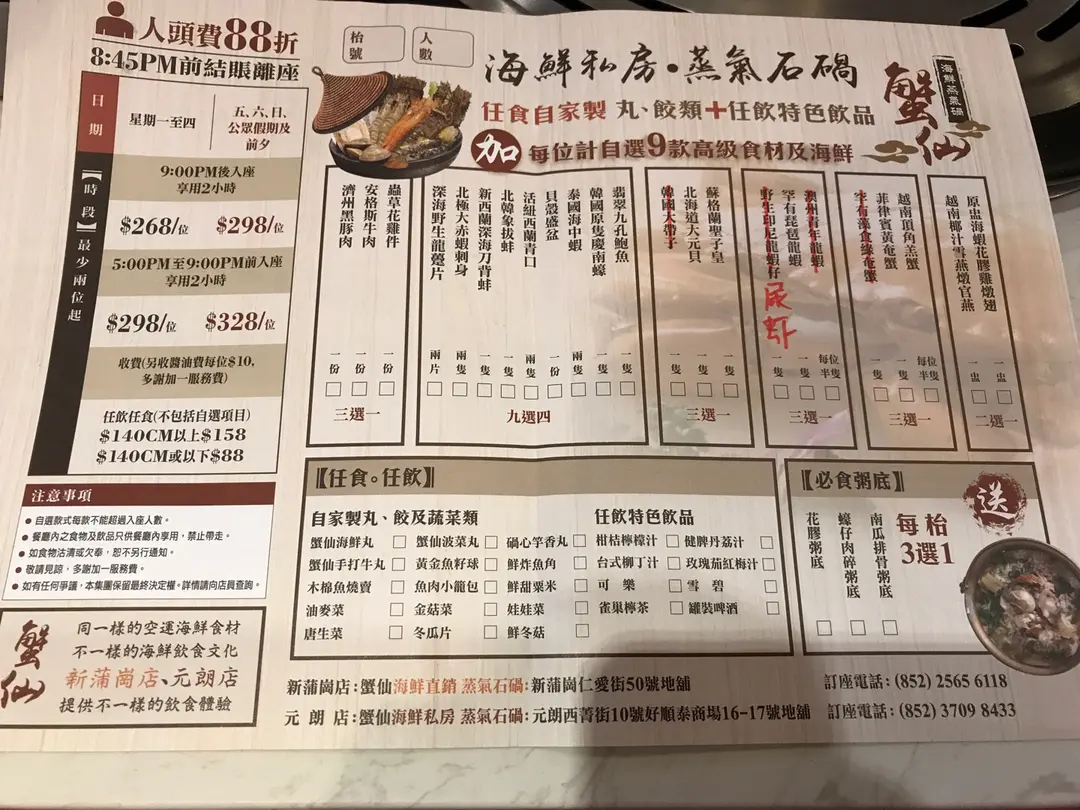 人頭費88折
8:45PM前結賬離座
枱號
人數
海鮮私房·蒸氣石鍋
任食自家製 丸、餃類+任飲特色飲品
加 每位計自選9款高級食材及海鮮
海鮮蒸氣鍋
蟹仙
日期
星期一至四
五、六、日、
公眾假期及
前夕
【時段】最少兩位起
9:00PM後入座
享用2小時
$268/位 $298/位
5:00PM至9:00PM前入座
享用2小時
$298/位 $328/位
收費(另收醬油費每位$10,
多謝加一服務費)
任飲任食(不包括自選項目)
$140CM以上$158
$140CM或以下$88
濟州黑豚肉 一份
安格斯牛肉 一份
蟲草花雞件 一份
三選一
深海野生龍躉片 兩片
北極大赤蝦刺身 兩隻
新西蘭深海刀背蚌 一隻
北韓象拔蚌 一隻
活紐西蘭青口 兩隻
貝殼盛盆 一份
泰國海中蝦 兩隻
韓國原隻慶南蠔 一隻
翡翠九孔鮑魚 一隻
九選四
韓國大帶子 一隻
北海道大元貝 一隻
蘇格蘭聖子皇 一隻
三選一
野生印尼龍蝦仔 一隻
尿虾
罕有琵琶龍蝦 一隻
澳州青年龍蝦 每位半隻
三選一
罕有藻食緣奄蟹 一隻
菲律賓黃奄蟹 一隻
越南頂角羔蟹 每位半隻
三選一
越南椰汁雪燕燉官燕 一盅
原盅海蝦花膠雞燉翅 一盅
二選一
注意事項
● 自選款式每款不能超過入座人數。
● 餐廳內之食物及飲品只供餐廳內享用，禁止帶走。
● 如食物沽清或欠奉，恕不另行通知。
● 敬請見諒，多謝加一服務費。
● 如有任何爭議，本集團保留最終決定權。詳情請向店員查詢。
【任食。任飲】
自家製丸、餃及蔬菜類
任飲特色飲品
蟹仙海鮮丸 蟹仙菠菜丸 鍋心竽香丸 柑桔檸檬汁 健脾丹荔汁
蟹仙手打牛丸 黃金魚籽球 鮮炸魚角 台式柳丁汁 玫瑰茄紅梅汁
木棉魚燒賣 魚肉小籠包 鮮甜粟米 可樂 雪碧
油麥菜 金菇菜 娃娃菜 雀巢檸茶 罐裝啤酒
唐生菜 冬瓜片 鮮冬菇
【必食粥底】
送
花膠粥底
蠔仔肉碎粥底
南瓜排骨粥底
每枱
3選1
蟹仙
同一樣的空運海鮮食材
不一樣的海鮮飲食文化
新蒲崗店、元朗店
提供不一樣的飲食體驗
新蒲崗店:蟹仙海鮮直銷 蒸氣石鍋:新蒲崗仁愛街50號地舖 訂座電話:(852) 2565 6118
元朗店:蟹仙海鮮私房 蒸氣石鍋:元朗西菁街10號好順泰商場16-17號地舖 訂座電話:(852) 3709 8433